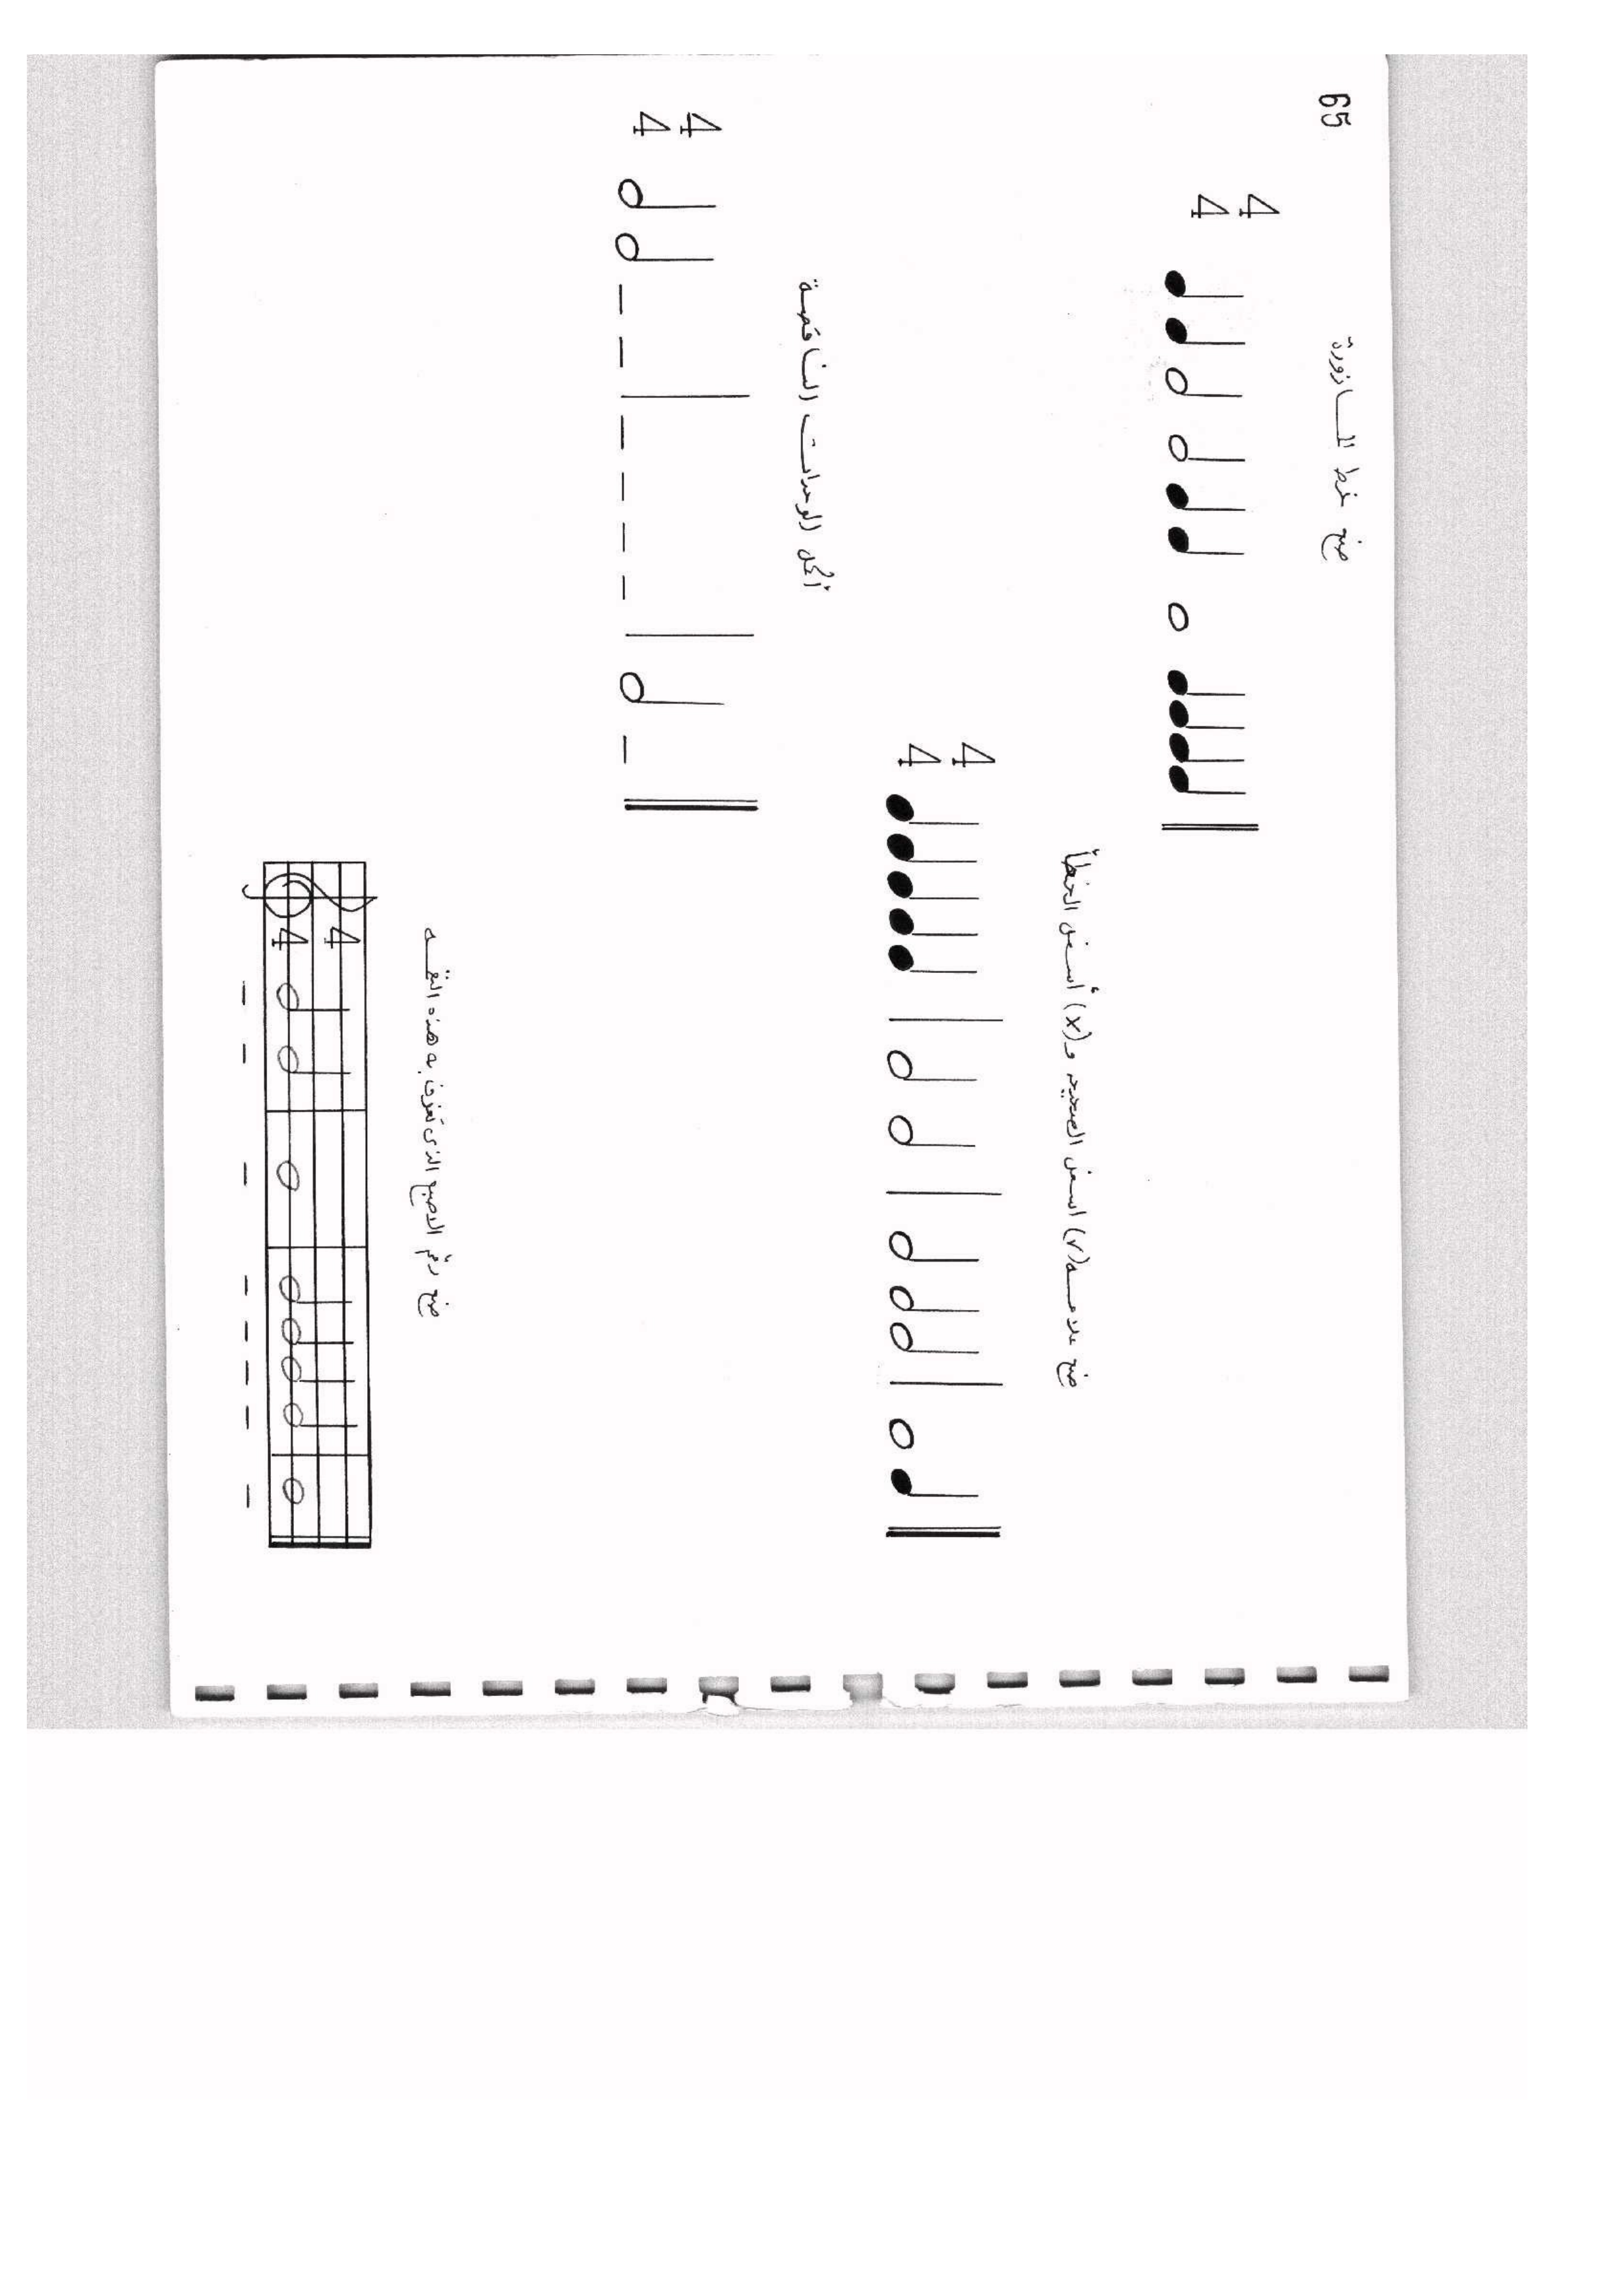 65
ضع خط المازورة
4
4
ضع علامـــة (√) أسفل الصحيح و (x) أسفل الخطأ
4
4
أكمل الوحدات الناقصة
4
4
ضع رقم الاصبع الذى تعزف به هذه النغمـــه
4
4